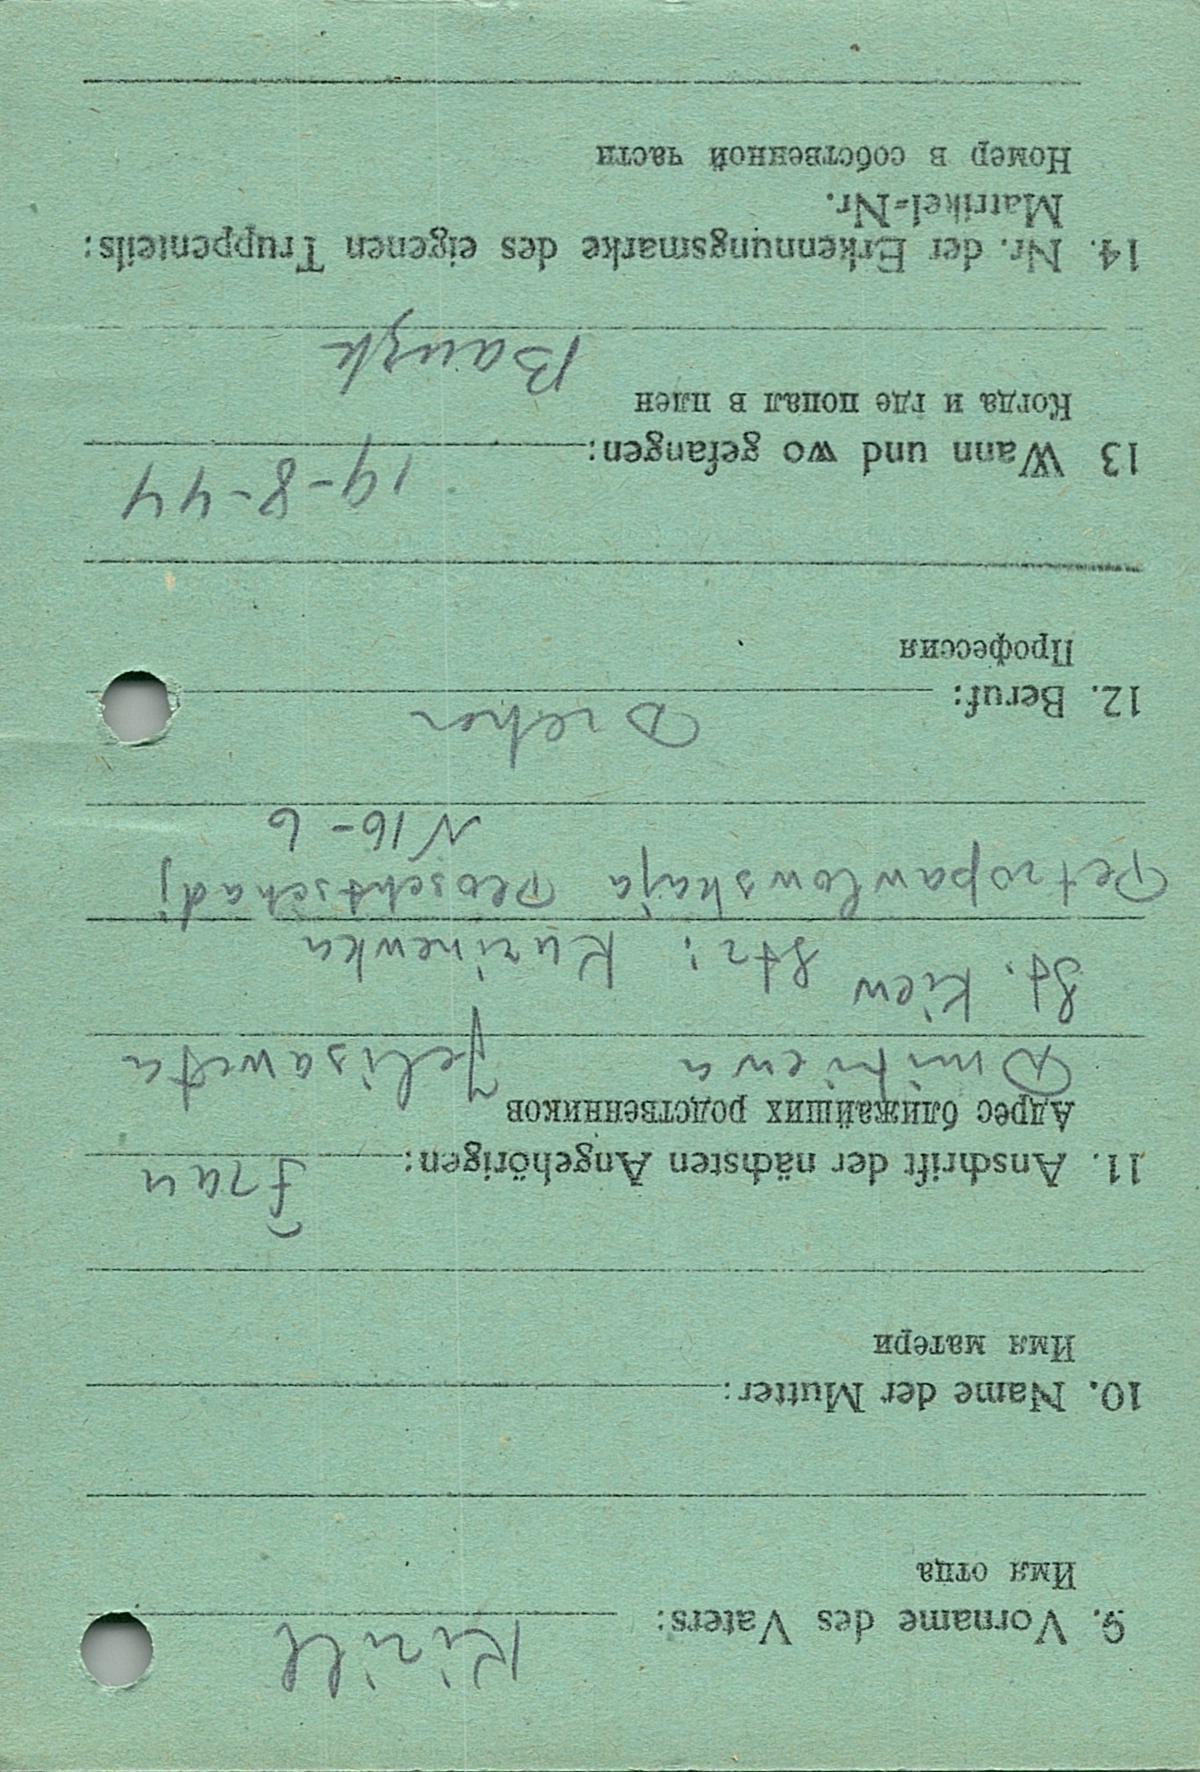 9. Vorname des Vaters: Kirill
Имя отца
10. Name der Mutter:
Имя матери
11. Anschrift der nächsten Angehörigen: Frau
Адрес ближайших родственников
Dmitriewa Jelisaweta
St. Kiew Str: Kurinewka
Petropawlowskaja Ploschtschadj
N 16-6
12. Beruf: Dreher
Профессия
13 Wann und wo gefangen: 19-8-44
Когда и где попал в плен
Bausk
14. Nr. der Erkennungsmarke des eigenen Truppenteils:
Matrikel-Nr.
Номер в собственной части